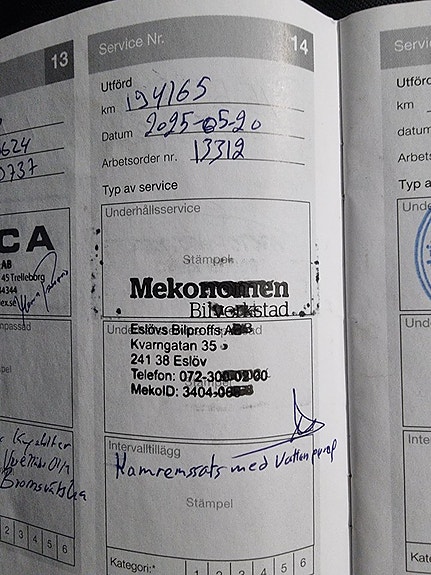 13
Service Nr.
14
Servi
Utförd
km 194165
Datum 2025-05-20
Arbetsorder nr. 13312
Typ av service
Underhållsservice
Stämpel
Mekonomen
Bilverkstad
Eslövs Bilproffs AB
Kvarngatan 35
241 38 Eslöv
Telefon: 072-300
MekoID: 3404-
Intervalltillägg
Kamremssats med Vattenpump
Stämpel
Kategori:*
1 2 3 4 5 6
0624
0737
CA
AB
45 Trelleborg
44344
ex.se
anpassad
Bromsvätska
2 3 4 5 6
Utförd
km
datum
Arbets
Typ a
Unde
Inte
Kate